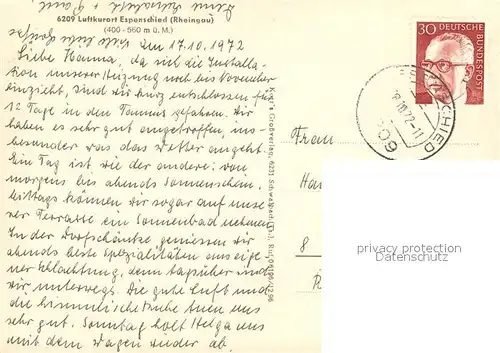 6209 Luftkurort Espenschied (Rheingau)
(400 - 560 m ü. M.)
am 17.10.1972
Liebe Hanna, da sich die Installa-
tion unserer Heizung weit bis November
einzieht, sind wir kurz entschlossen für
12 Tage in den Taunus gefahren. Wir
haben es sehr gut angetroffen, ins-
besonder was das Wetter angeht.
Ein Tag ist wie der andere: von
morgens bis abends Sonnenschein.
Mittags können wir sogar auf unse
rer Terrasse ein Sonnenbad nehmen.
In der Dorfschänke genießen wir
abends beste Spezialitäten aus eige-
ner Schlachtung, denn tagsüber sind
wir unterwegs. Die gute Luft und
die himmlische Ruhe tun uns
sehr gut. Sonntag holt Helga uns
mit dem Wagen wieder ab.
Krapf's Großverlag, 6231 Schwalbach (Ts.)
30 DEUTSCHE
BUNDESPOST
ESPENSCHIED
18.10.72-11
6209
Frau
Ha
8
privacy protection
Datenschutz